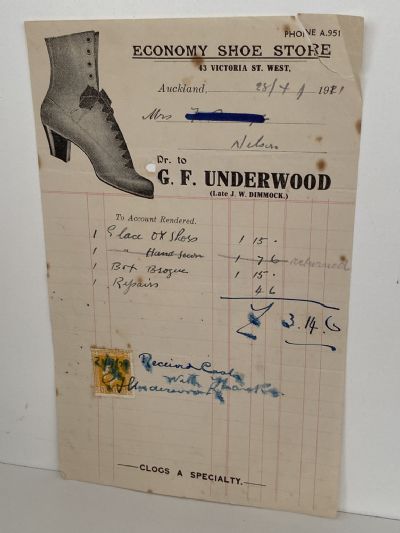 PHONE A.951
ECONOMY SHOE STORE
43 VICTORIA ST. WEST,
Auckland, 23/4/1921
Mrs
Nelson
Dr. to
G. F. UNDERWOOD
(Late J. W. DIMMOCK.)
To Account Rendered.
1 Glace Ox Shoes 1 15 .
1 " Hand sewn 1 7 6 returned
1 Box Brogue 1 15 .
1 Repairs 4 6
£ 3.14.6
Received Cash
With Thanks
G F Underwood
CLOGS A SPECIALTY.